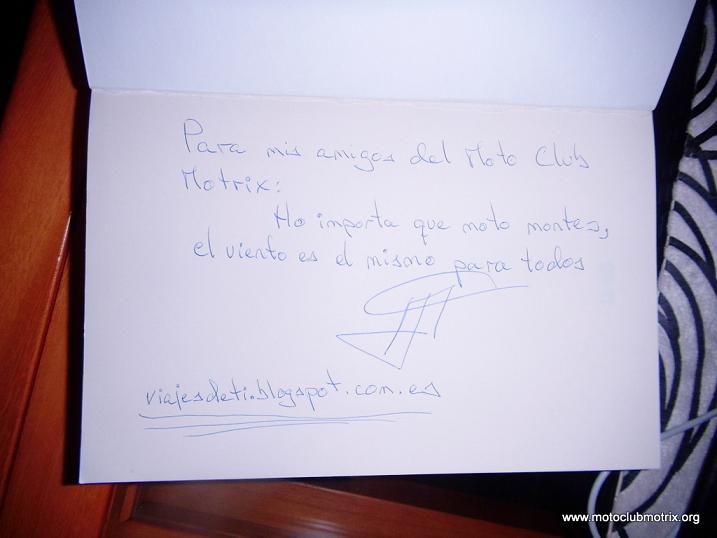 Para mis amigos del Moto Club
Motrix:
No importa que moto montes,
el viento es el mismo para todos
viajesdeti.blogspot.com.es
www.motoclubmotrix.org